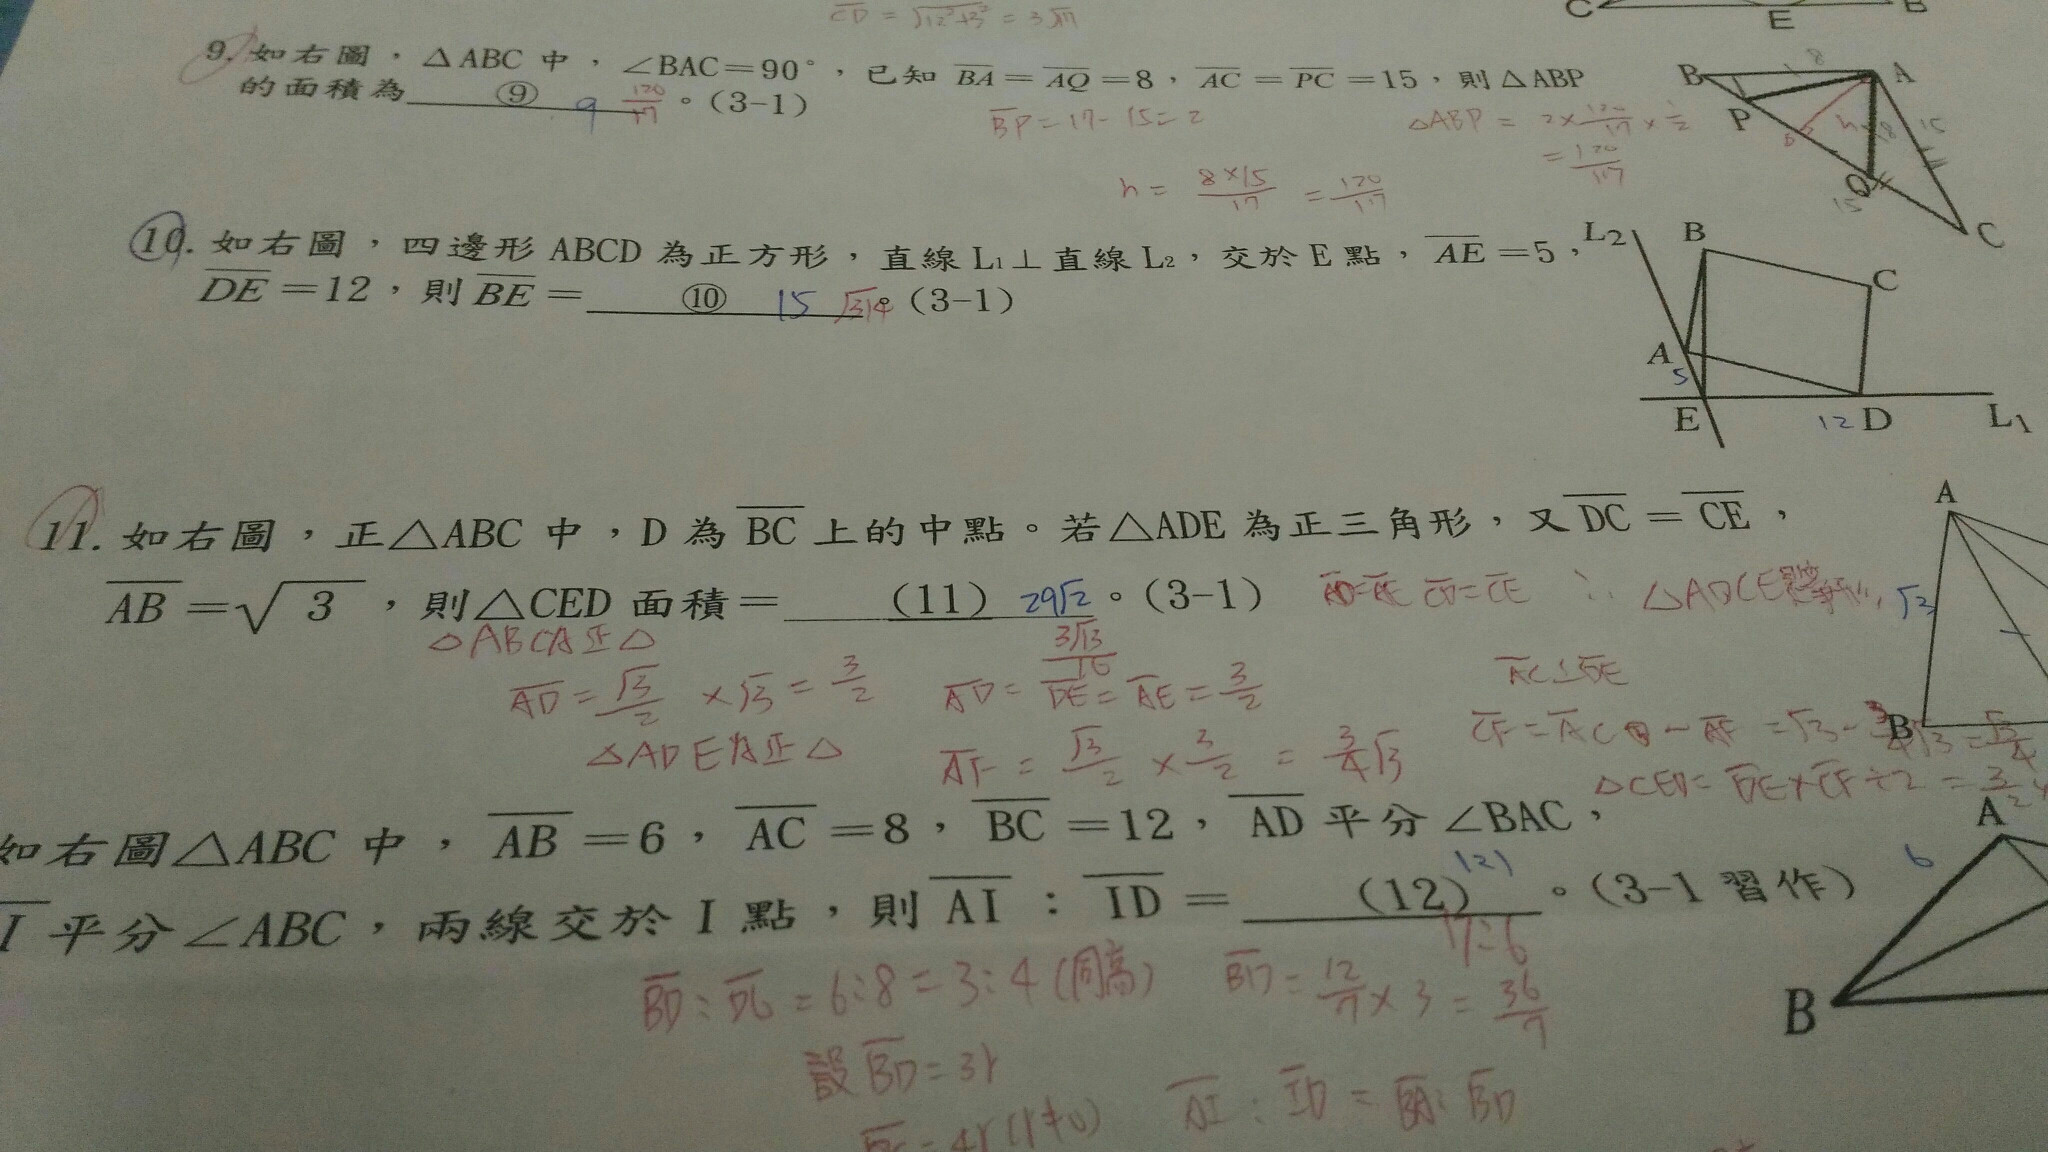 CD = √12²+3² = 3√17
C E B
9. 如右圖，△ABC 中，∠BAC=90°，已知 BA=AQ=8，AC=PC=15，則△ABP
的面積為 ⑨ 9 120/17 。(3-1)
BP=17-15=2
△ABP = 2×120/17×1/2
= 120/17
h = 8×15/17 = 120/17
B 8 A
P h 8 15
Q
15 C
10. 如右圖，四邊形 ABCD 為正方形，直線 L1⊥直線 L2，交於 E 點，AE=5，
DE=12，則 BE= ⑩ 15 √314 。(3-1)
L2 B
C
A
5
E 12 D L1
11. 如右圖，正△ABC 中，D 為 BC 上的中點。若△ADE 為正三角形，又 DC=CE，
AB=√3，則△CED 面積= (11) 29√2 。(3-1)
3√3/16
AD=AE CD=CE ∴
△ABC為正△
AD = √3/2 ×√3 = 3/2
AD = DE = AE = 3/2
AC⊥DE
△ADE為正△
AF = √3/2 × 3/2 = 3/4√3
CF = AC - AF = √3 - 3/4√3 = √3/4
△CED = DE×CF÷2 = 3/2×
A
√3
B
如右圖△ABC 中，AB=6，AC=8，BC=12，AD 平分∠BAC，
I 平分∠ABC，兩線交於 I 點，則 AI：ID= (12) 。(3-1 習作)
A
6
B
BD : DC = 6:8 = 3:4 (同高)
BD = 12/7 × 3 = 36/7
設 BD = 3r
AI : ID = BA : BD